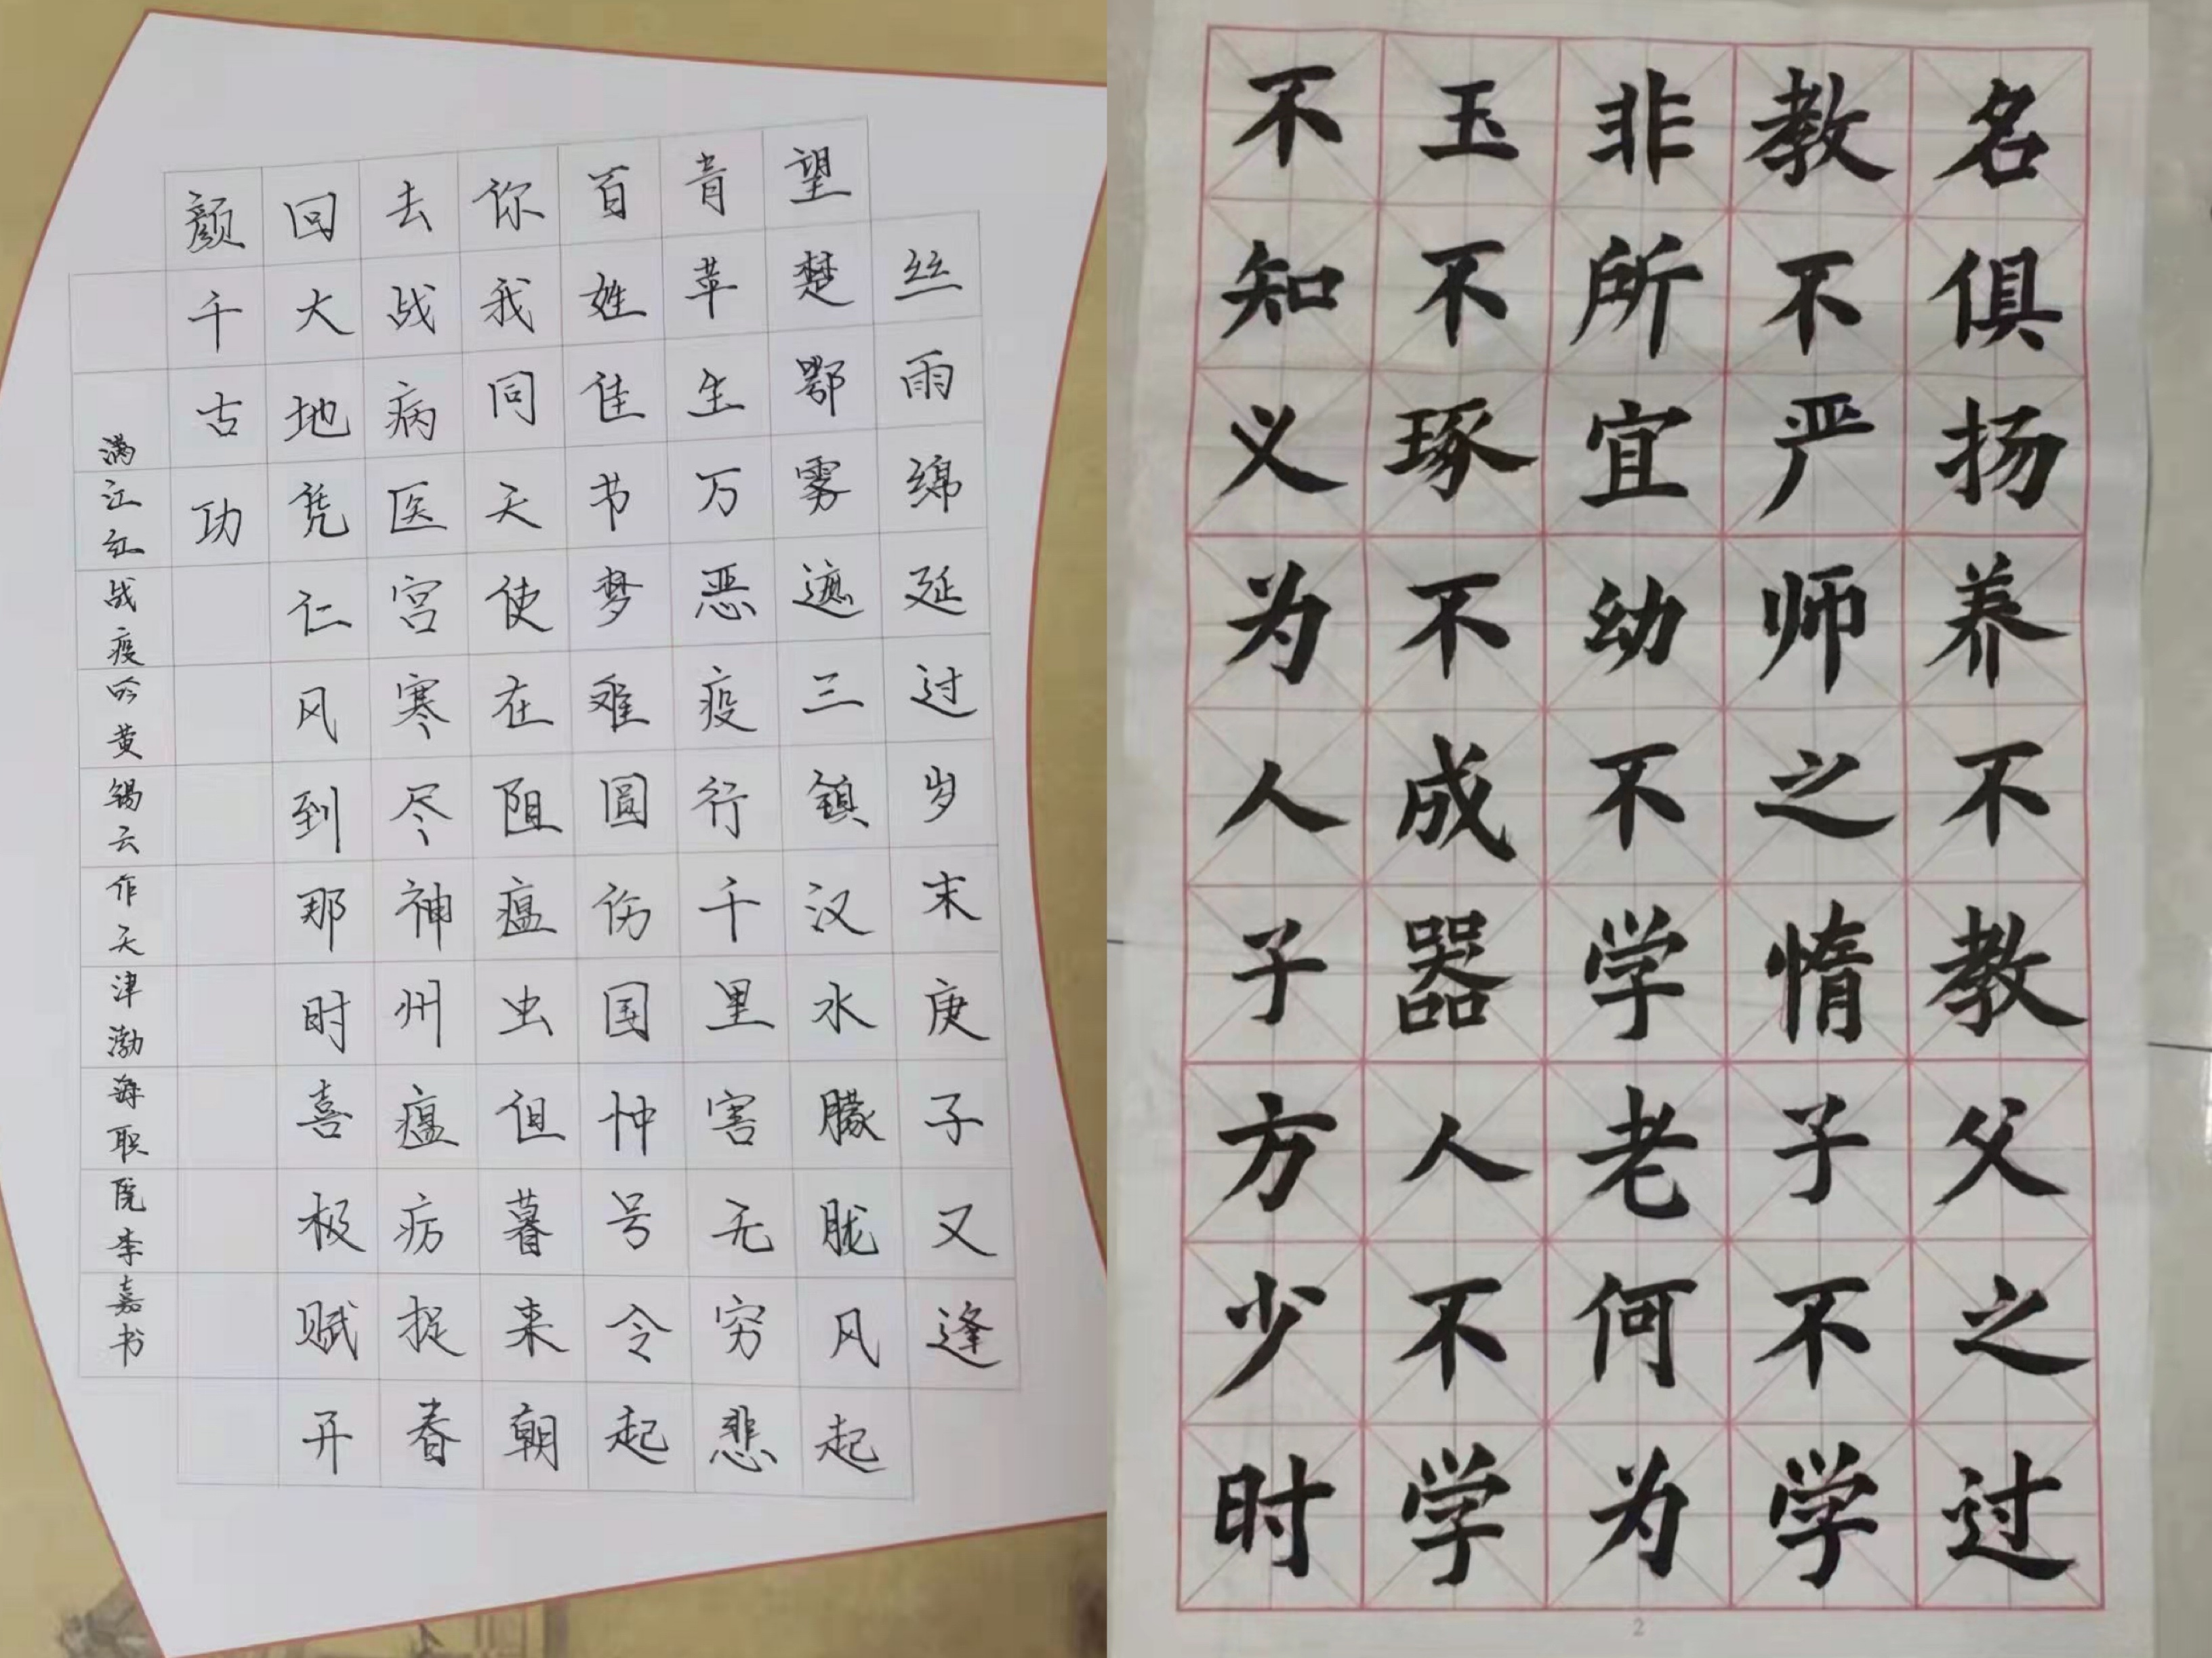 丝雨绵延过岁末庚子又逢
望楚鄂雾遮三镇汉水朦胧风起
青苹生万恶疫行千里害无穷悲
百姓佳节梦难圆伤国忡号令起
你我同天使在阻瘟虫但暮来朝
去战病医宫寒尽神州瘟疠捉春
回大地凭仁风到那时喜极赋开
颜千古功
满江红战疫吟黄锡云作天津渤海职院李嘉书
名俱扬养不教父之过
教不严师之惰子不学
非所宜幼不学老何为
玉不琢不成器人不学
不知义为人子方少时
2